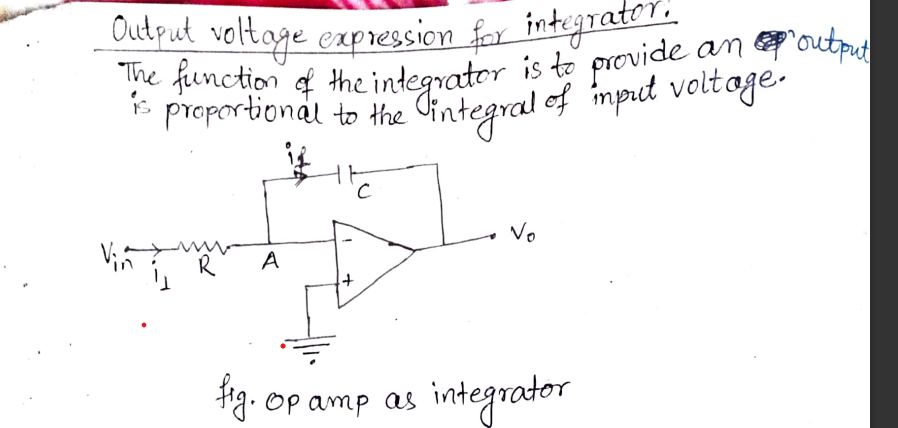 Output voltage expression for integrator.
The function of the integrator is to provide an output
is proportional to the integral of input voltage.
if
C
Vin
i1
R
A
-
+
Vo
fig. op amp as integrator